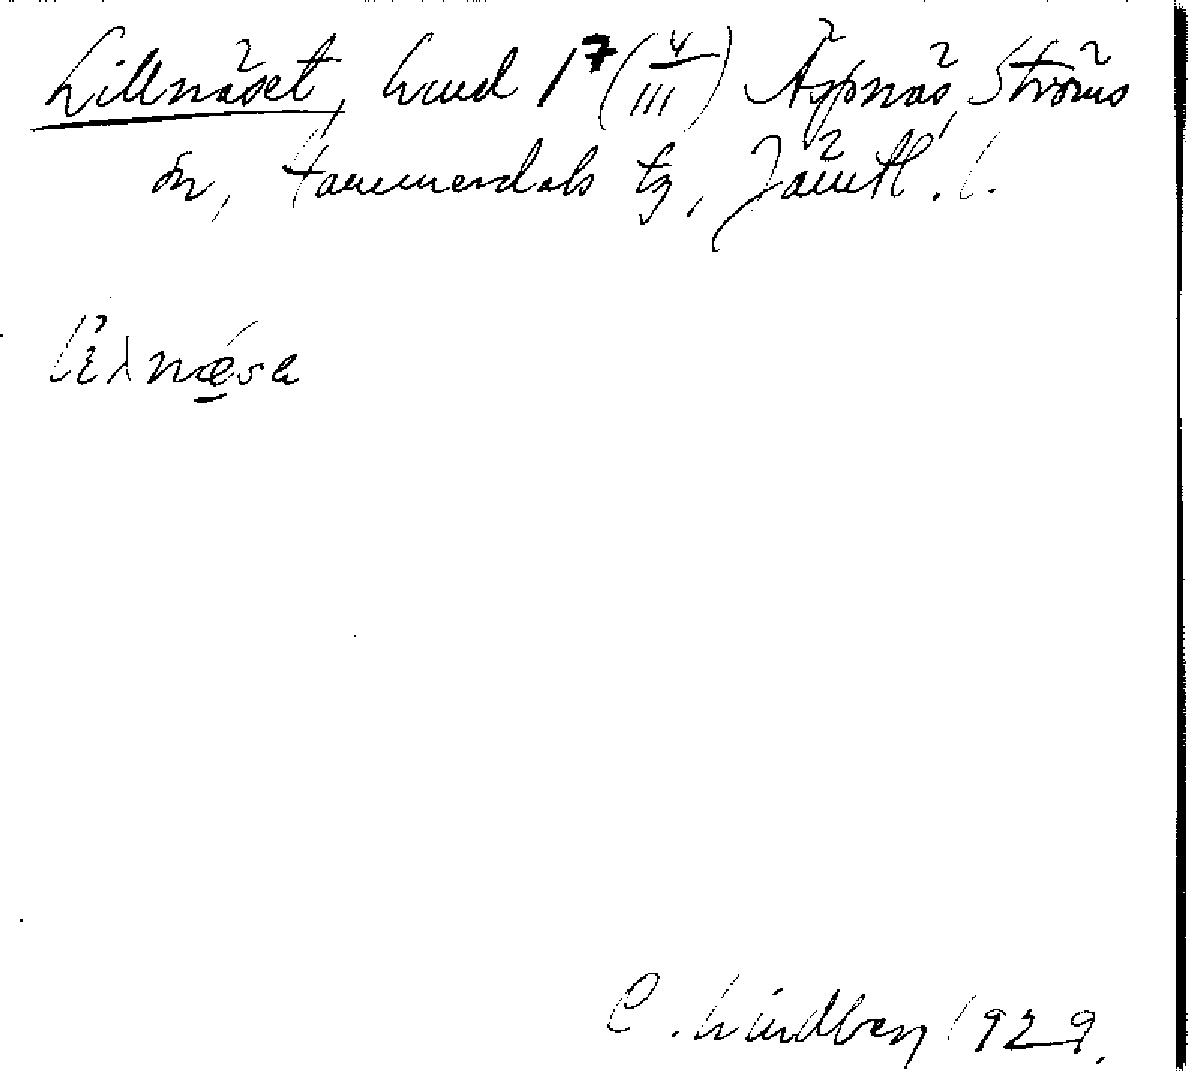 Lillnäset, hmd 1⁷ (V/III) Äspnäs, Ströms
sn, Hammerdals tg, Jämtl. l.
C. Lindberg 1929.